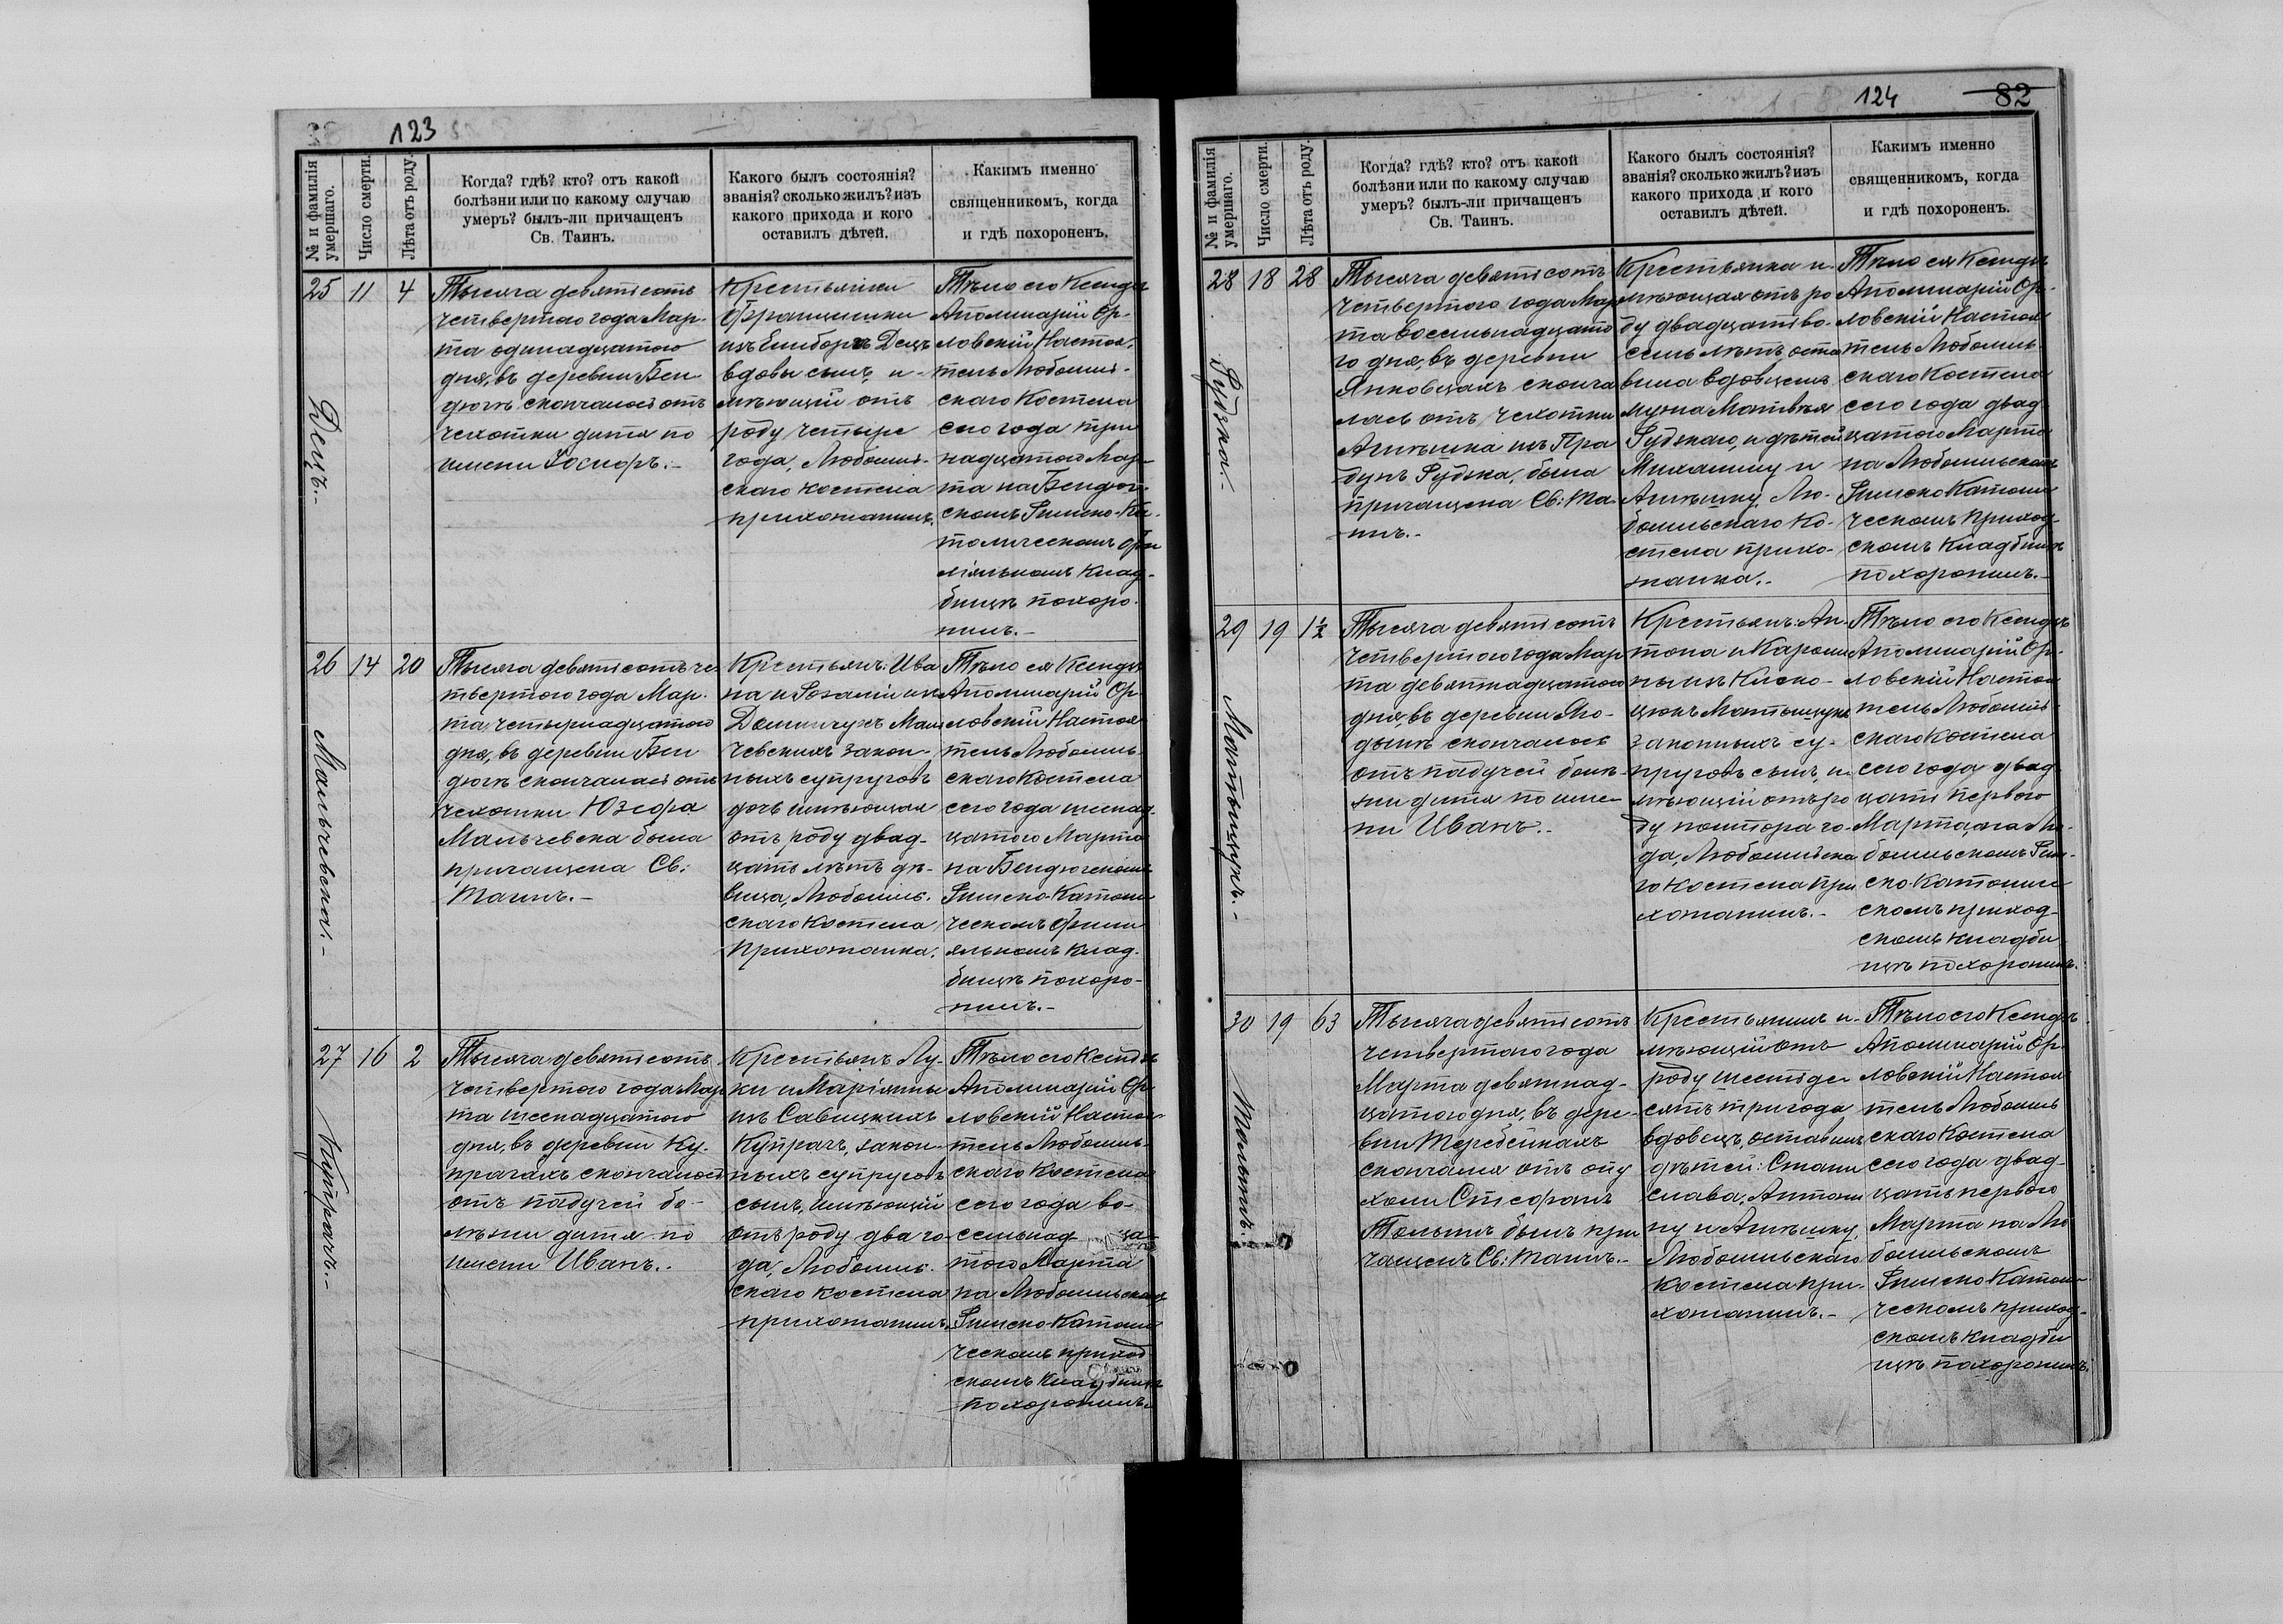 123
№ и фамилія умершаго.
Число смерти.
Лѣта отъ роду.
Когда? гдѣ? кто? отъ какой
болѣзни или по какому случаю
умеръ? былъ-ли причащенъ
Св. Таинъ.
Какого былъ состоянія?
званія? сколько жилъ? изъ
какого прихода и кого
оставилъ дѣтей.
Какимъ именно
священникомъ, когда
и гдѣ похороненъ.
25 11 4
Децъ.-
Тысяча девятьсотъ
четвертого года Мар-
та одинадцатого
дня, въ деревни Бен
дюгѣ скончалось отъ
чехотки дитя по
имени Іосифъ.-
Крестьянки
Франтишки
изъ Децъ
вдовы сынъ, и-
мѣющій отъ
роду четыре
года, Любомль-
скаго костела
прихожанинъ.
Тѣло его Ксендзъ
Аполинарій Ор-
ловскій Настоя-
тель Любомль-
скаго Костела
сего года три
надцатого Мар-
та на Бендюг-
скомъ Римско-Ка-
толическомъ Фи
ліяльномъ Клад-
бищѣ похоро-
нилъ.-
26 14 20
Мальчевска.-
Тысяча девятьсотъ че
твертого года Мар-
та четырнадцатого
дня, въ деревни Бен
дюгѣ скончалась отъ
чехотки Юзефа
Мальчевска была
причащена Св:
Таинъ.-
Крестьянъ: Ива
на и Розаліи изъ
Доминчукъ Маль
чевскихъ закон-
ныхъ супруговъ
дочь имѣющая
отъ роду двад-
цать лѣтъ дѣ-
вица, Любомль-
скаго Костела
прихожанка.
Тѣло ея Ксендзъ
Аполинарій Ор
ловскій Настоя
тель Любомль-
скаго Костела
сего года шеснад-
цатого Марта
на Бендюгскомъ
Римско-Католи
ческомъ Фили
яльномъ Клад-
бищѣ похоро-
нилъ.-
27 16 2
Купрачъ.-
Тысяча девятьсотъ
четвертого года Мар
та шеснадцатого
дня, въ деревни Ку-
прачахъ скончалось
отъ падучей бо-
лѣзни дитя по
имени Иванъ.-
Крестьянъ Лу-
ки и Маріянны
изъ Савицкихъ
Купрачъ, закон-
ныхъ супруговъ
сынъ, имѣющій
отъ роду два го-
да, Любомль-
скаго костела
прихожанинъ.
Тѣло его Ксендзъ
Аполинарій Ор
ловскій Настоя-
тель Любомль-
скаго Костела
сего года во-
семьнадца-
того Марта
на Любомльскомъ
Римско-Католи
ческомъ приход
скомъ кладбищѣ
похоронилъ.
124
82
№ и фамилія умершаго.
Число смерти.
Лѣта отъ роду.
Когда? гдѣ? кто? отъ какой
болѣзни или по какому случаю
умеръ? былъ-ли причащенъ
Св. Таинъ.
Какого былъ состоянія?
званія? сколько жилъ? изъ
какого прихода и кого
оставилъ дѣтей.
Какимъ именно
священникомъ, когда
и гдѣ похороненъ.
28 18 28
Рудзка.-
Тысяча девятьсотъ
четвертого года Мар
та восемьнадцато
го дня, въ деревни
Янковцахъ сконча
лась отъ чехотки
Агнѣшка изъ Пра
дунъ Рудзка, была
причащена Св: Та-
инъ.-
Крестьянка и-
мѣющая отъ ро
ду двадцать во-
семь лѣтъ, оста
вила вдовцемъ
мужа Матвѣя
Рудзкаго, и дѣтей
Михалину и
Агнѣшку, Лю-
бомльскаго Ко-
стела прихо-
жанка.-
Тѣло ея Ксендзъ
Аполинарій Ор-
ловскій Настоя
тель Любомль-
скаго Костела
сего года двад
цатого Марта
на Любомльскомъ
Римско Католи
ческомъ приход-
скомъ Кладбищѣ
похоронилъ.-
29 19 1½
Матыщукъ.-
Тысяча девятьсотъ
четвертого года Мар
та девятнадцатого
дня, въ деревни Лю-
дынѣ скончалось
отъ падучей болѣ-
зни дитя по име-
ни Иванъ.-
Крестьянъ: Ан-
тона и Кароли
ны изъ
Матыщукъ
законныхъ су-
пруговъ сынъ, и
мѣющій отъ ро
ду полтора го-
да, Любомльска
го костела при
хожанинъ.-
Тѣло его Ксендзъ
Аполинарій Ор-
ловскій Настоя
тель Любомль-
скаго Костела
сего года двад
цать первого
Марта, на Лю-
бомльскомъ Рим-
ско-Католиче
скомъ приход-
скомъ кладби
щѣ похоронилъ.
30 19 63
Тысяча девятьсотъ
четвертого года
Марта девятнад-
цатого дня, въ дере-
вни Теребейкахъ
скончался отъ опу
холи Стефанъ
былъ при
чащенъ Св: Таинъ.-
Крестьянинъ и-
мѣющій отъ
роду шестьде
сятъ три года
вдовецъ, оставилъ
дѣтей: Стани
слава, Антони
ну и Агнѣшку,
Любомльскаго
костела при-
хожанинъ.-
Тѣло его Ксендзъ
Аполинарій Ор
ловскій Настоя
тель Любомль
скаго Костела
сего года двад-
цать первого
Марта на Лю
бомльскомъ
Римско Католи
ческомъ приход-
скомъ кладби
щѣ похоронилъ.